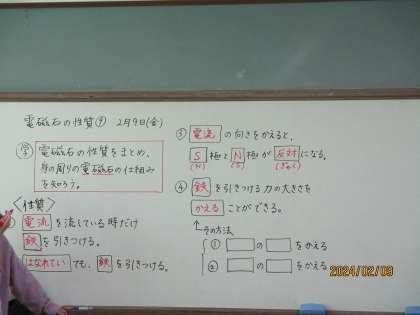 電磁石の性質⑨ 2月9日(金)
㋻ 電磁石の性質をまとめ、
身の周りの電磁石の仕組み
を知ろう。
〈性質〉
電流 を流している時だけ
鉄 を引きつける。
はなれてい でも、鉄 を引きつける。
③ 電流 の向きをかえると、
S 極と N 極が 反対 になる。
(N) (S) (ぎゃく)
④ 鉄 を引きつける力の大きさを
かえる ことができる。
その方法
① の をかえる
② の をかえる
2024/02/09